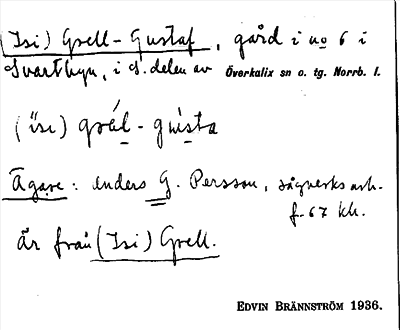 (Isi) Grell-Gustaf, gård i no 6 i
Svartbyn, i S. delen av Överkalix sn o. tg. Norrb. l.
(ïsı) grǽl-gùsta
Ägare: Anders G. Persson, sågverksarb.
f. 67 kh.
Är från (Isi) Grell.
EDVIN BRÄNNSTRÖM 1936.